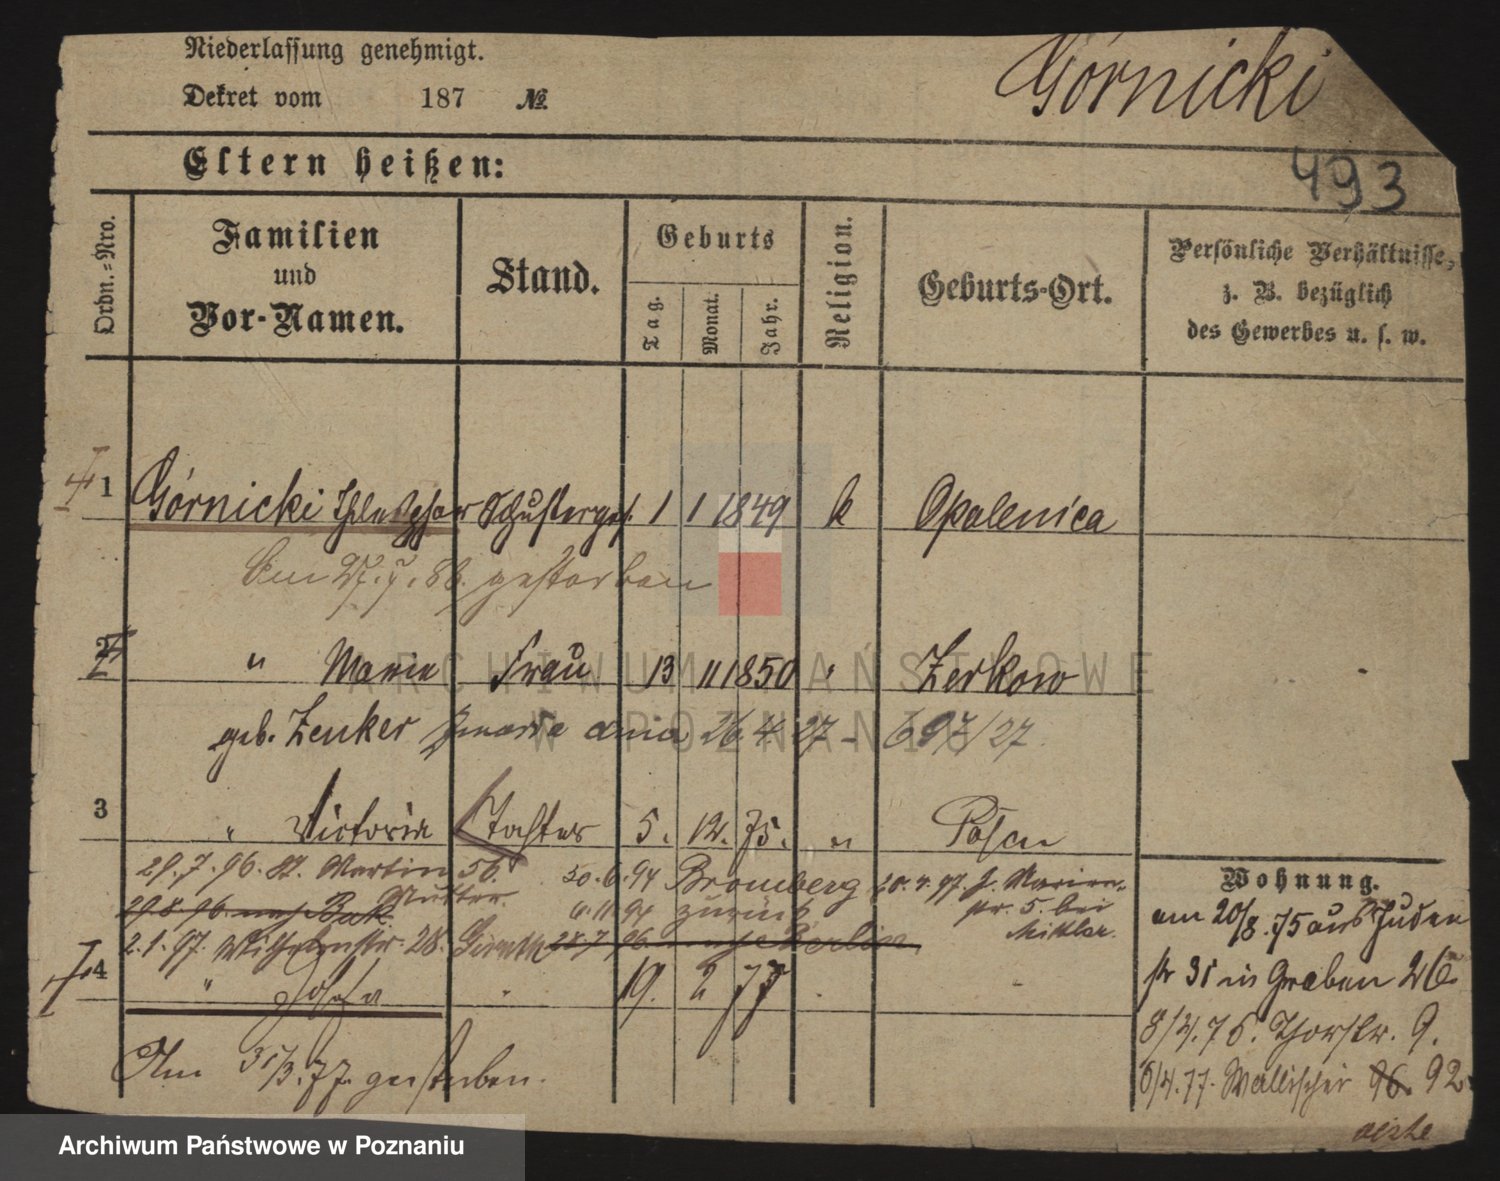 Niederlassung genehmigt.
Dekret vom 187 №.
Górnicki
Eltern heißen:
493
Ordn.-Nro.
Familien
und
Vor-Namen.
Stand.
Geburts
Tag.
Monat.
Jahr.
Religion.
Geburts-Ort.
Persönliche Verhältnisse,
z. B. bezüglich
des Gewerbes u. s. w.
1 Górnicki Schusterges. 1 1 1849 k Opalenica
Am 27. 7. 86. gestorben
2 " Marie Frau 13 11 1850 " Zerkow
geb. Zenker zmarła dnia 26 4 27 - 697/27
3 " Victoria Tochter 5. 12. 75. " Posen
29.7.96. St. Martin 56.
Mutter.
30.6.94 Bromberg
6.11.94 zurück
20.4.97. J. Marien-
str. 5. bei
Miklas.
29.8.96. nach
2.1.97. Wilhelmstr. 28.
28.7.96. nach Berlin
4 " Josefa " 19. 2 77
Am 31/3. 77. gestorben.
Wohnung.
am 20/8. 75 aus Juden
str 31 in Graben 26.
8/4. 76. Thorstr. 9.
6/4. 77. Wallischei 96. 92
ARCHIWUM PAŃSTWOWE
W POZNANIU
Archiwum Państwowe w Poznaniu